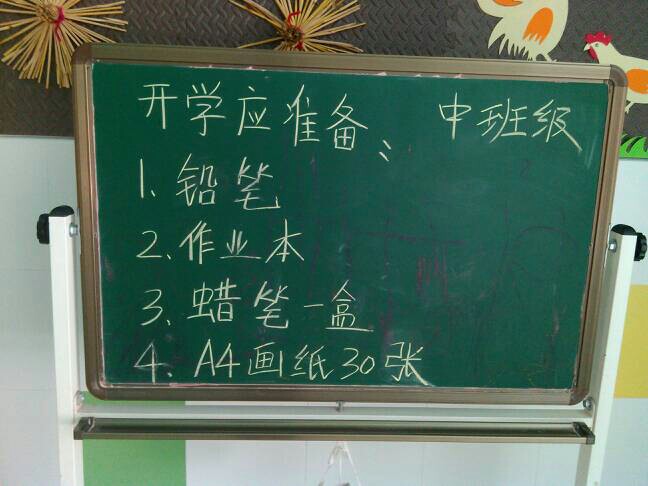 开学应准备： 中班级
1. 铅笔
2. 作业本
3. 蜡笔一盒
4. A4画纸30张